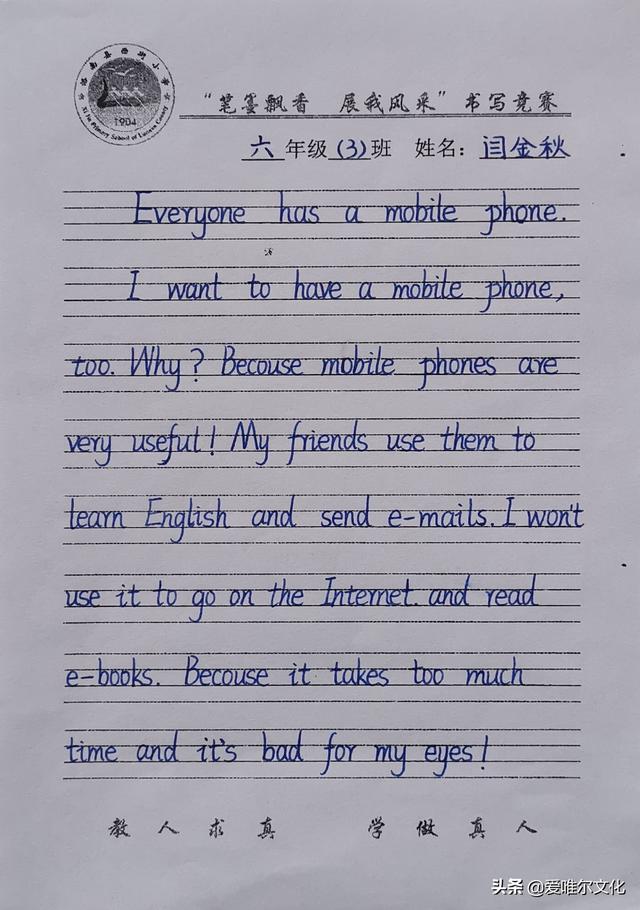 1904
"笔墨飘香 展我风采"书写竞赛
六年级(3)班 姓名：闫金秋
Everyone has a mobile phone.
I want to have a mobile phone,
too. Why? Becouse mobile phones are
very useful! My friends use them to
learn English and send e-mails. I won't
use it to go on the Internet. and read
e-books. Becouse it takes too much
time and it's bad for my eyes!
教人求真 学做真人
头条 @爱唯尔文化